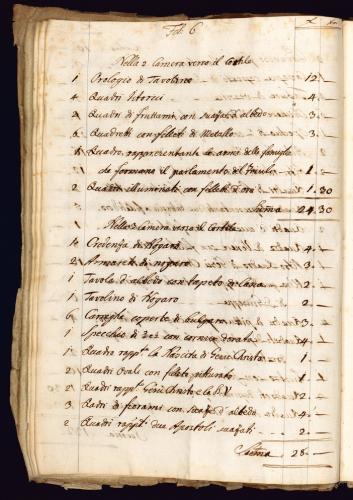 Fol. 6
Nella 2 Camera verso il Cortile
1 Orologio di Tavolino 12 -
4 Quadri Istorici 4 -
2 Quadri di fruttami con suaza d'albedo 3 -
6 Quadretti con filleti di Metallo 3 -
1 Quadro rappresentante le armi delle famiglie
che formano il parlamento del Friuli 1 -
2 Quadri illuminati con filletti d'oro 1. 30
Suma 24. 30
Nella 3 Camera verso il Cortile
1 Credenza di Nogaro 4 -
2 di nogaro
1 Tavola d'albedo con tapeto di lana 2 -
1 Tavolino di Nogaro 2 -
6 Careghe coperte di bulgaro 3 -
1 Specchio di con cornice dorata 4 -
1 Quadro rappte la Nascita di Gesù Christo 1 -
2 Quadri Ovali con filetti 1 -
2 Quadri rappti Gesù Christo e la B. V. 2 -
3 Qadri di fiorami con d'albedo 4 -
2 Quadri rappti due Apostoli suazati 2 -
Suma 28 -